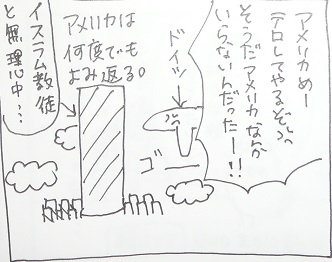 アメリカめー
テロしてやるぞぉぉ
そうだアメリカなんか
いらないんだったー!!
ドイツ
ゴー
アメリカは
何度でも
よみ返る。
イスラム教徒
と無理心中…